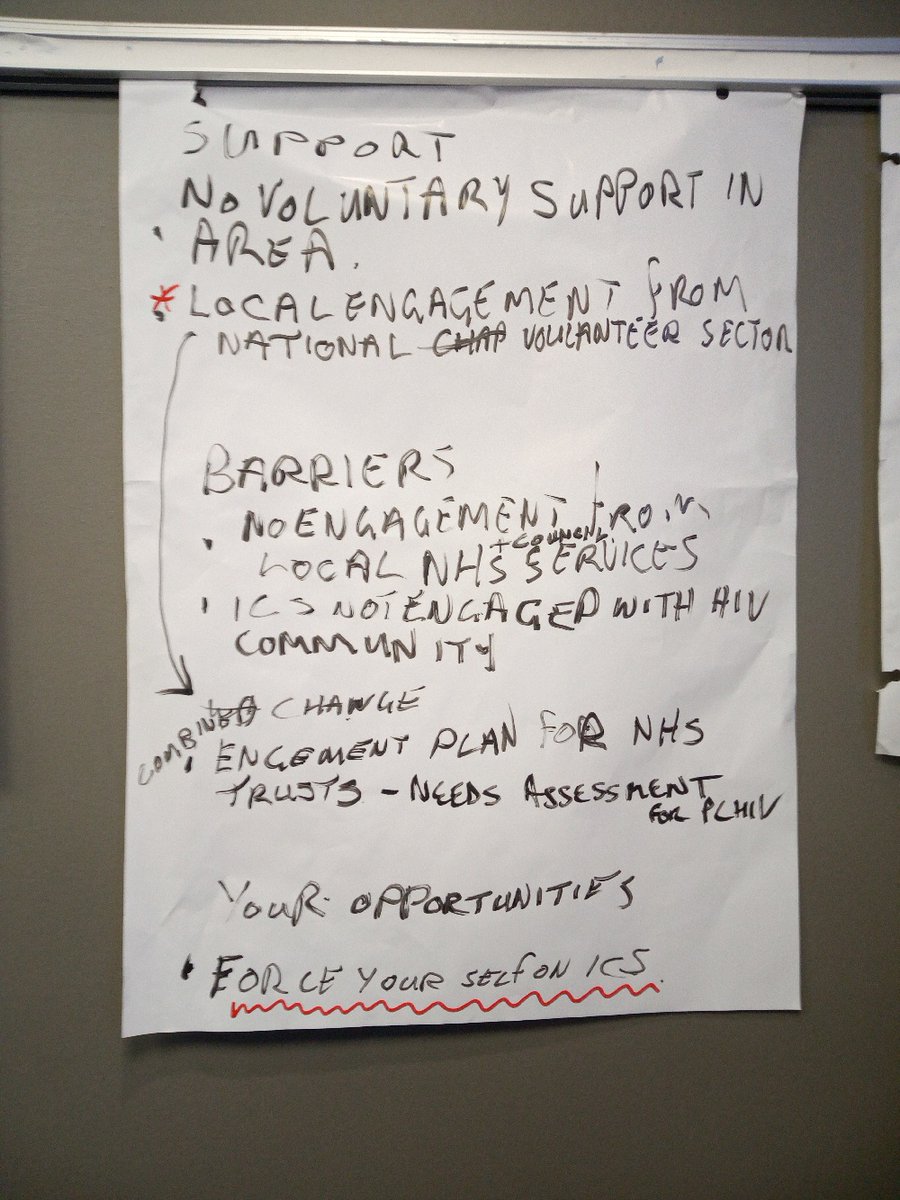 SUPPORT
NO VOLUNTARY SUPPORT IN
• AREA.
* • LOCAL ENGAGEMENT FROM
NATIONAL CHAP VOULANTEER SECTOR
BARRIERS
• NO ENGAGEMENT FROM
+ COUNCIL
LOCAL NHS SERVICES
• ICS NOT ENGAGED WITH HIV
COMMUNITY
CHANGE
COMBINED
• ENGEMENT PLAN FOR NHS
TRUSTS - NEEDS ASSESSMENT
FOR PLHIV
YOUR OPPORTUNITIES
• FORCE YOUR SELF ON ICS.